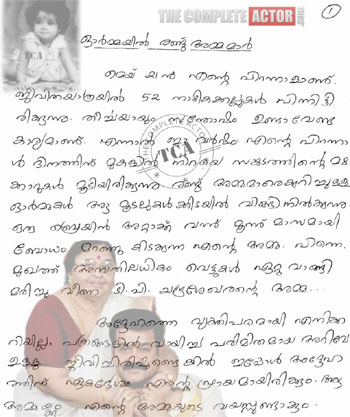 THE COMPLETE ACTOR .com
1
ഓർമ്മയിൽ രണ്ടു അമ്മമാർ
മെയ് 21ന് എന്റെ പിറന്നാളാണ്.
ജീവിതയാത്രയിൽ 52 നാഴികക്കല്ലുകൾ പിന്നിട്ടി
രിക്കുന്നു. തീർച്ചയായും സന്തോഷം ഉണ്ടാവേണ്ട
കാര്യമാണ്. എന്നാൽ ഈ വർഷം എന്റെ പിറന്നാ
ൾ ദിനത്തിന് മുകളിൽ നിറയെ സങ്കടത്തിന്റെ മഴ
ക്കാറുകൾ മൂടിയിരിക്കുന്നു. രണ്ടു അമ്മമാരെക്കുറിച്ചുള്ള
ഓർമകൾ ആ മൂടലുകൾക്കിടയിൽ വിങ്ങി നിൽക്കുന്നു.
ഒരു ബ്രെയിൻ അറ്റാക്ക് വന്ന് മൂന്ന് മാസമായി
ബോധം മറഞ്ഞു കിടക്കുന്ന എന്റെ അമ്മ. പിന്നെ,
മുഖത്ത് അമ്പതിലധികം വെട്ടുകൾ ഏറ്റു വാങ്ങി
മരിച്ചു വീണ ടി. പി. ചന്ദ്രശേഖരന്റെ അമ്മ...
അദ്ദേഹത്തെ വ്യക്തിപരമായി എനിക്ക
റിയില്ല. പത്രങ്ങളിൽ വായിച്ച പരിമിതമായ അറിവേ
ഉള്ളു. ജീവിച്ചിരിപ്പുണ്ടെങ്കിൽ ഇപ്പോൾ അദ്ദേഹ
ത്തിന് ഏകദേശം എന്റെ പ്രായമായിരിക്കും. ആ
അമ്മയ്ക്കും എന്റെ അമ്മയുടെ വയസ്സുണ്ടാകും.
THE COMPLETE ACTOR
TCA
TCA